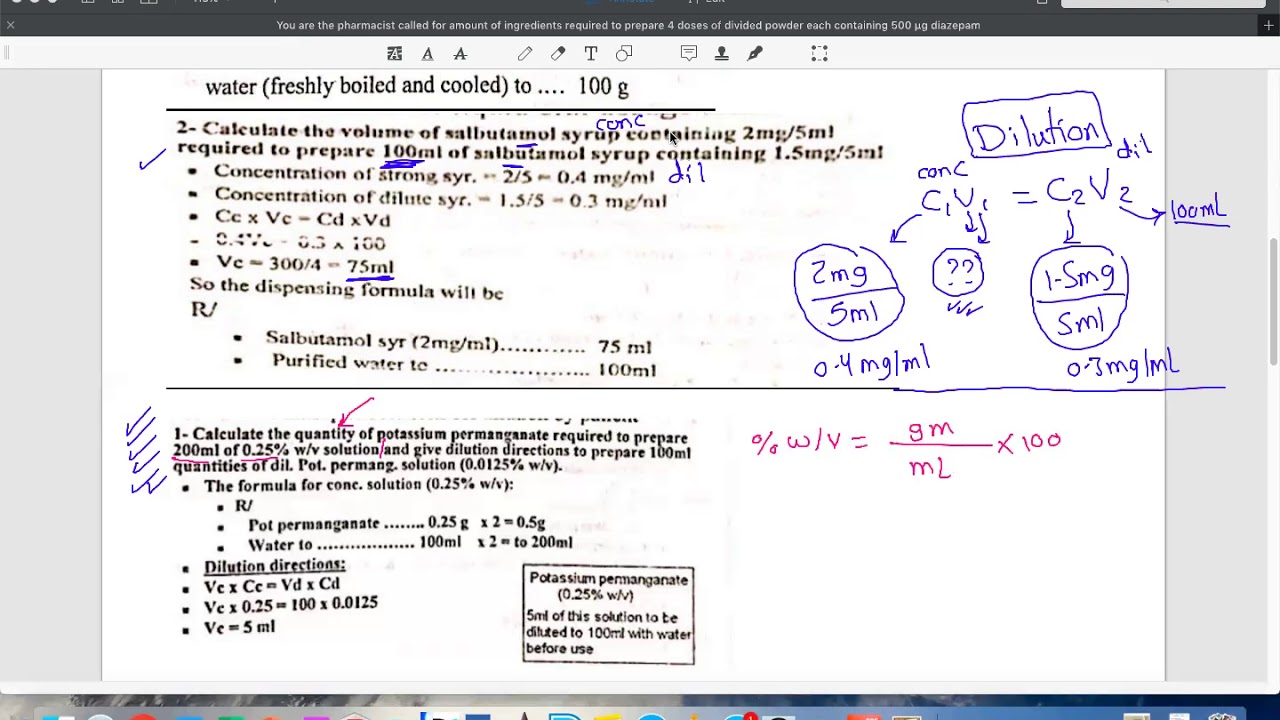 You are the pharmacist called for amount of ingredients required to prepare 4 doses of divided powder each containing 500 µg diazepam
water (freshly boiled and cooled) to .... 100 g
conc
2- Calculate the volume of salbutamol syrup containing 2mg/5ml
required to prepare 100ml of salbutamol syrup containing 1.5mg/5ml
dil
Concentration of strong syr. = 2/5 = 0.4 mg/ml
Concentration of dilute syr. = 1.5/5 = 0.3 mg/ml
Cc x Vc = Cd x Vd
= 0.4Vc = 0.3 x 100
Vc = 300/4 = 75ml
So the dispensing formula will be
R/
Salbutamol syr (2mg/ml)............ 75 ml
Purified water to ...................... 100ml
Dilution
conc
dil
C1V1 = C2V2
100mL
2mg
5ml
??
1.5mg
5ml
0.4mg/ml
0.3mg/mL
1- Calculate the quantity of potassium permanganate required to prepare
200ml of 0.25% w/v solution and give dilution directions to prepare 100ml
quantities of dil. Pot. permang. solution (0.0125% w/v).
The formula for conc. solution (0.25% w/v):
R/
Pot permanganate ........ 0.25 g x 2 = 0.5g
Water to .................. 100ml x 2 = to 200ml
Dilution directions:
Vc x Cc = Vd x Cd
Vc x 0.25 = 100 x 0.0125
Vc = 5 ml
Potassium permanganate
(0.25% w/v)
5ml of this solution to be
diluted to 100ml with water
before use
% w/v = gm
mL
x 100